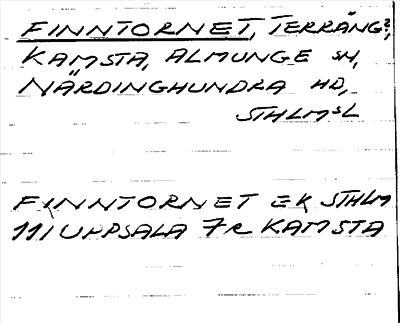 FINNTORNET, TERRÄNG?,
KAMSTA, ALMUNGE SN,
NÄRDINGHUNDRA HD,
STHLMSL
FINNTORNET EK STHLM
111 UPPSALA 7R KAMSTA